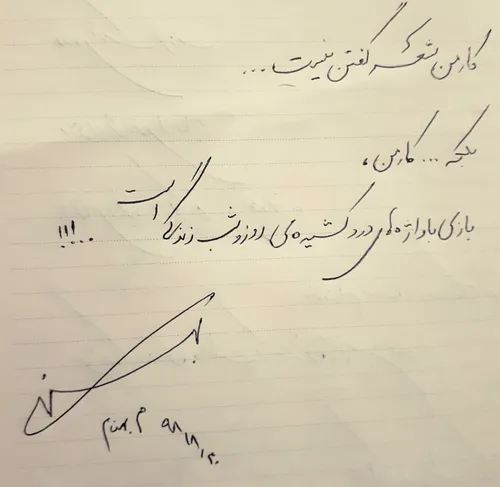 کار من شعر گفتن نیست...
بلکه... کار من،
بازی با واژه های درد کشیده ی روز و شب زندگی است...!!!
بهمن
۹۸/۸/۲۰ م.بهنام